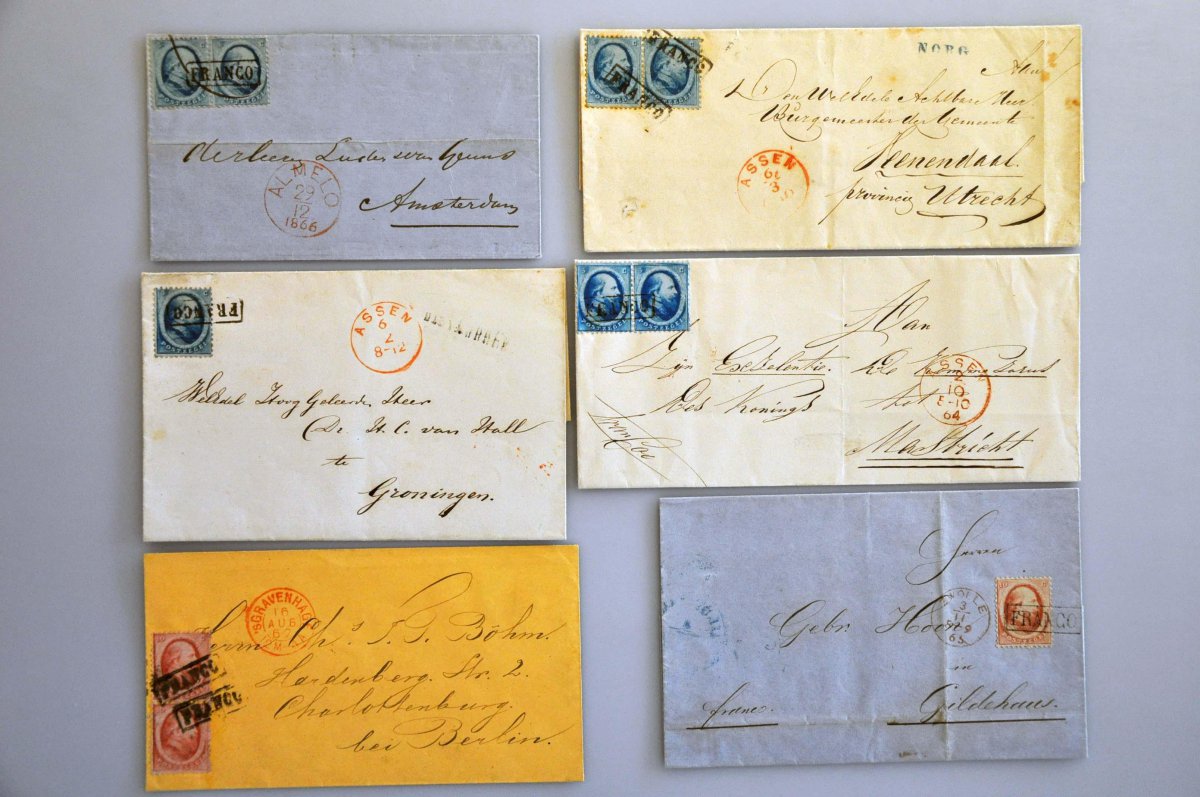 FRANCO
de heer Luden van Geuns
ALMELO
29
12
1866
Amsterdam
FRANCO
FRANCO
NORG
Aan
Den WelEdele Achtbare Heer
Burgemeester der Gemeente
Veenendaal.
provincie Utrecht
ASSEN
3
FRANCO
ASSEN
6
2
8-12
WelEdel Hoog Geleerde Heer
Dr. H. C. van Hall
te
Groningen.
FRANCO
Aan
Zijn Excelentie
des Konings
tot
Mastricht
franco
ASSEN
2
10
5-10
64
'SGRAVENHAGE
16
AUG
Herrn Ch's T. G. Böhm.
Hardenberg. Str. 2.
Charlottenburg.
bei Berlin.
FRANCO
FRANCO
Herren
Gebr. Hoon
in
Gildehaus.
franco.
ZWOLLE
3
11
FRANCO